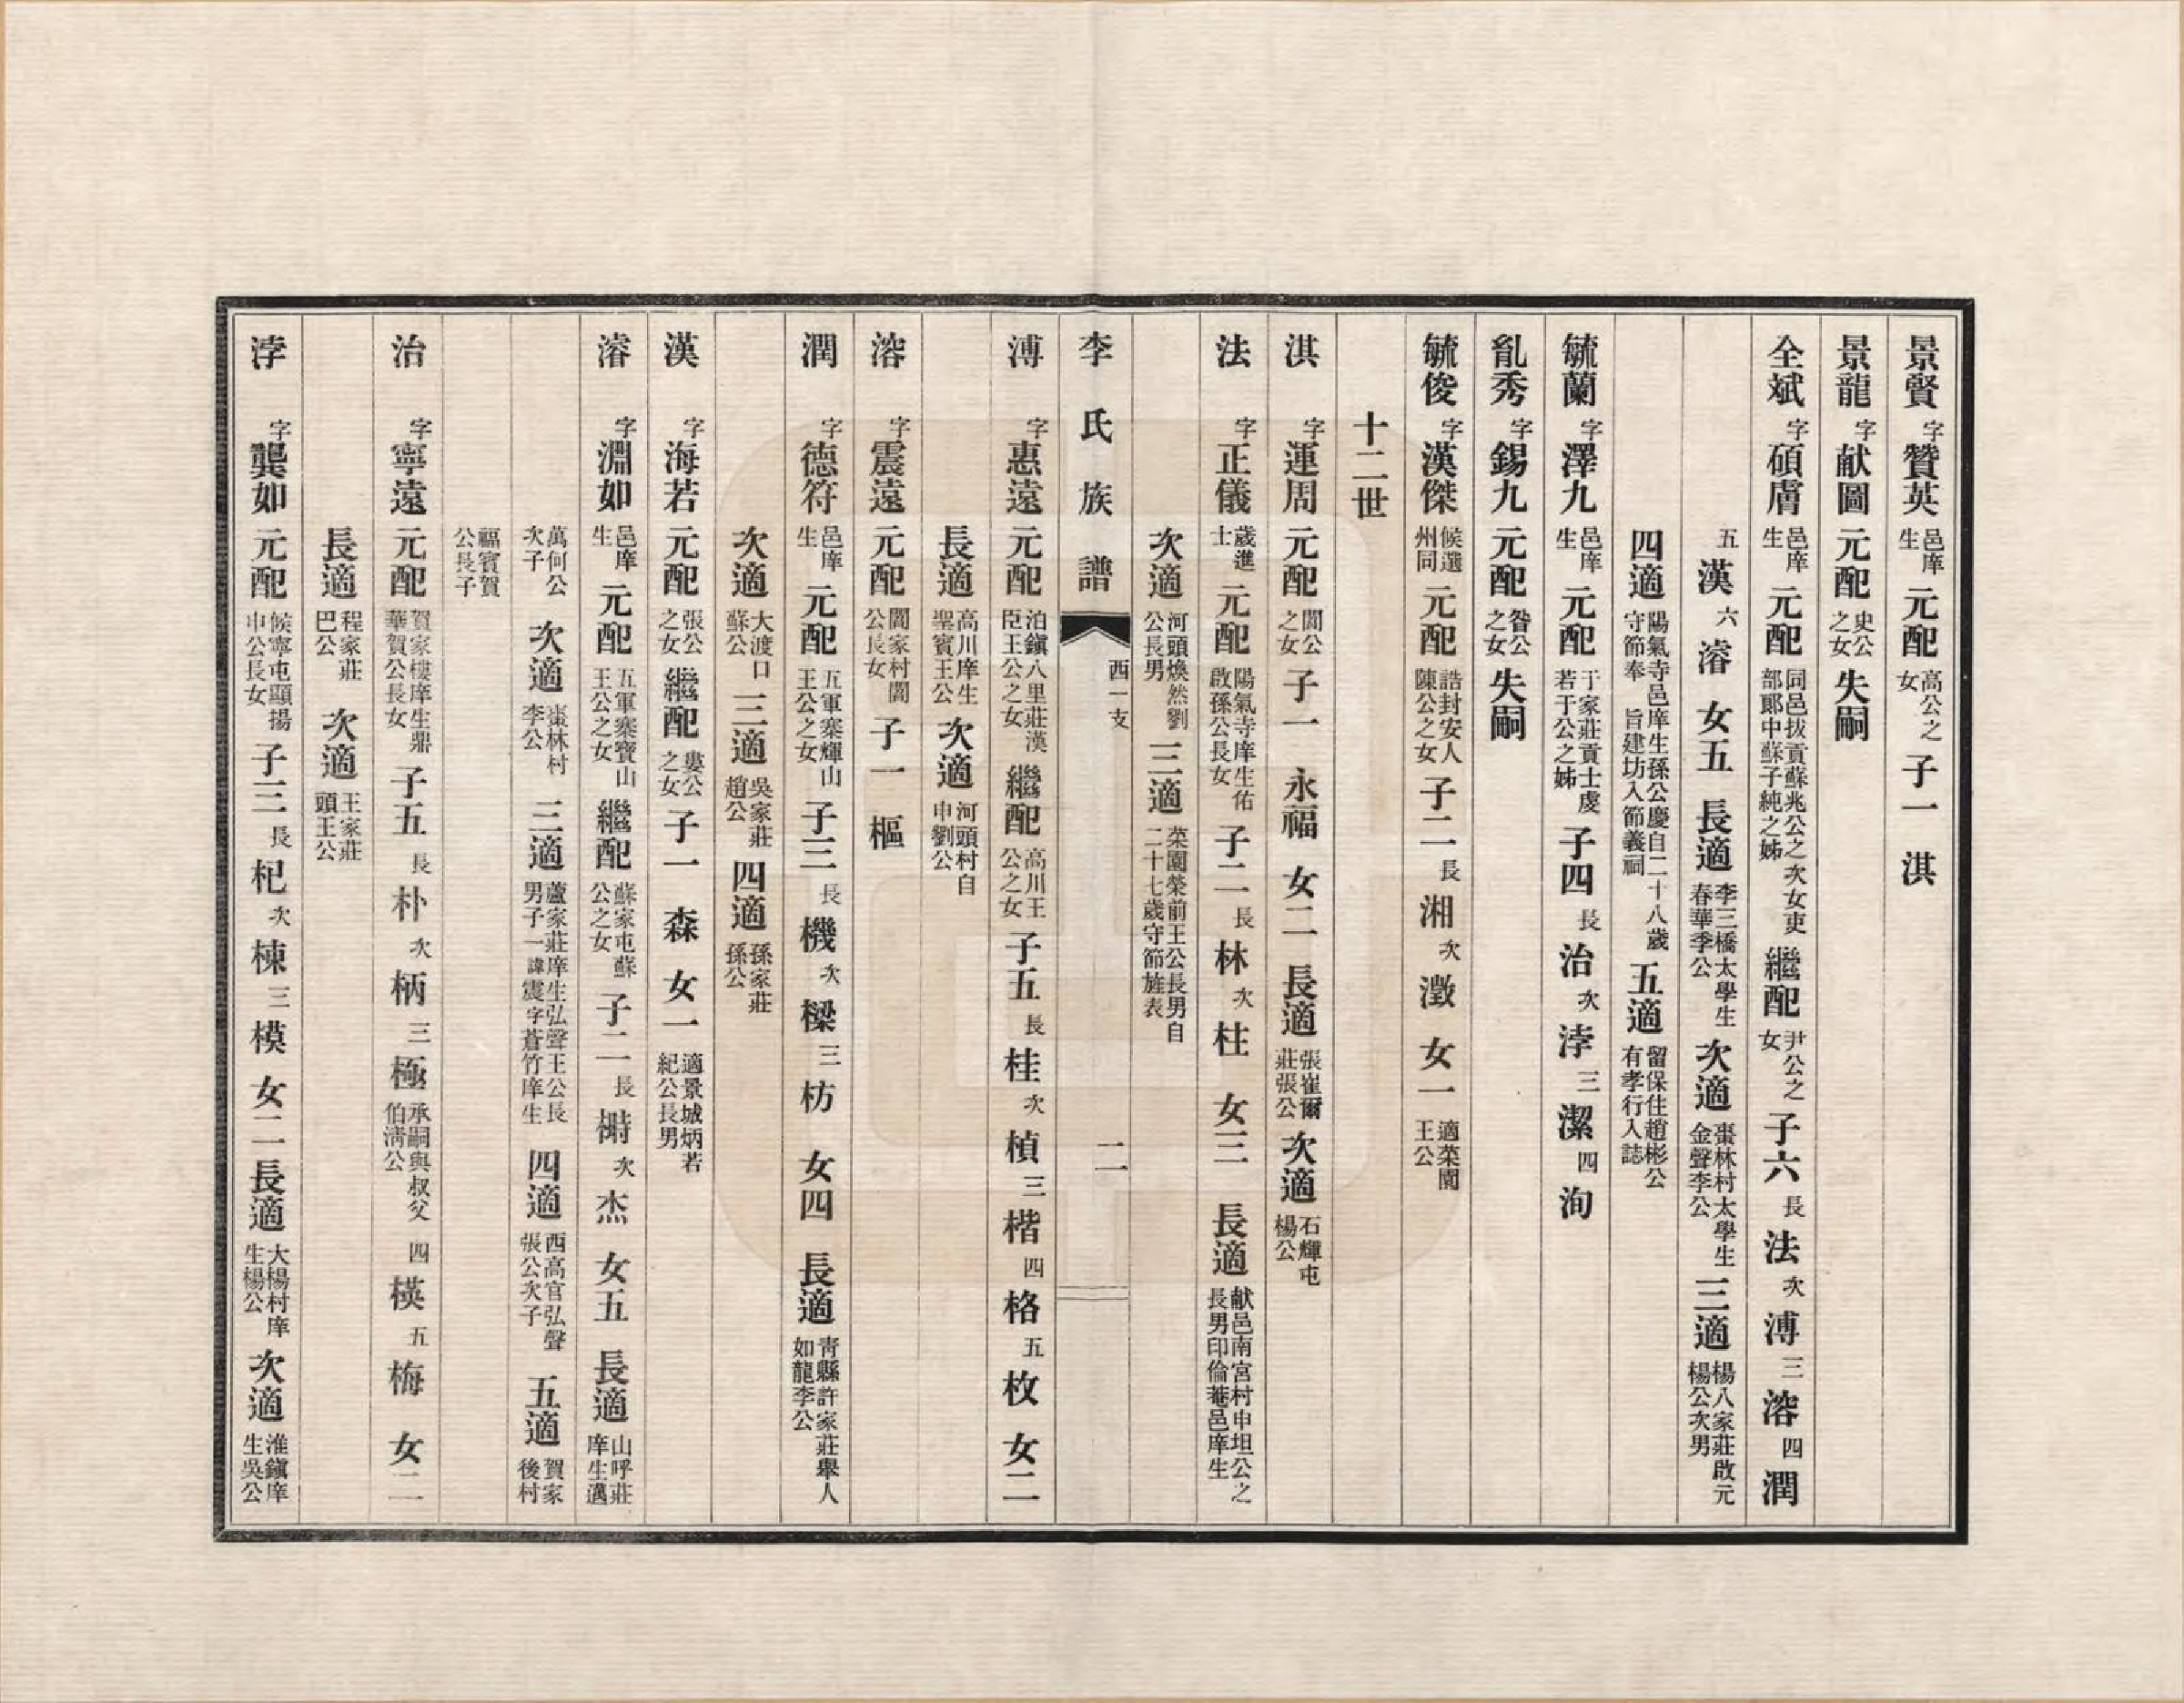 景賢 字贊英 邑庠生 元配 高公之女 子一 淇
景龍 字献圖 元配 史公之女 失嗣
全斌 字碩膚 邑庠生 元配 同邑拔貢蘇兆公之次女吏部郎中蘇子純之姊 繼配 尹公之女 子六 長法 次溥 三溶 四潤
五漢 六濬 女五 長適 李三橋太學生春華季公 次適 棗林村太學生金聲李公 三適 楊八家莊啟元楊公次男
四適 陽氣寺邑庠生孫公慶自二十八歲守節奉 旨建坊入節義祠 五適 留保住趙彬公有孝行入誌
毓蘭 字澤九 邑庠生 元配 于家莊貢士虔若于公之姊 子四 長治 次浡 三潔 四洵
亂秀 字錫九 元配 昝公之女 失嗣
毓俊 字漢傑 候選州同 元配 誥封安人陳公之女 子二 長湘 次澂 女一 適菜園王公
十二世
淇 字運周 元配 閻公之女 子一 永福 女二 長適 張崔爾莊張公 次適 石輝屯楊公
法 字正儀 歲進士 元配 陽氣寺庠生佑啟孫公長女 子二 長林 次柱 女三 長適 献邑南宮村申坦公之長男印倫菴邑庠生
次適 河頭煥然劉公長男 三適 菜園榮前王公長男自二十七歲守節旌表
李氏族譜 西一支 二
溥 字惠遠 元配 泊鎭八里莊漢臣王公之女 繼配 高川王公之女 子五 長桂 次楨 三楷 四格 五枚 女二
長適 高川庠生聖賓王公 次適 河頭村自申劉公
溶 字震遠 元配 閻家村閻公長女 子一 樞
潤 字德符 邑庠生 元配 五軍寨輝山王公之女 子三 長機 次樑 三枋 女四 長適 青縣許家莊舉人如龍李公
次適 大渡口蘇公 三適 吳家莊趙公 四適 孫家莊孫公
漢 字海若 元配 張公之女 繼配 婁公之女 子一 森 女一 適景城炳若紀公長男
濬 字淵如 邑庠生 元配 五軍寨寶山王公之女 繼配 蘇家屯蘇公之女 子二 長榯 次杰 女五 長適 山呼莊庠生邁
萬何公次子 次適 棗林村李公 三適 蘆家莊庠生弘聲王公長男子一諱震字蒼竹庠生 四適 西高官弘聲張公次子 五適 賀家後村
福賓賀公長子
治 字寧遠 元配 賀家樓庠生鼎華賀公長女 子五 長朴 次柄 三極 承嗣與叔父伯清公 四模 五梅 女二
長適 程家莊巴公 次適 王家莊頭王公
浡 字龔如 元配 候寧屯顯揚申公長女 子三 長杞 次棟 三模 女二 長適 大楊村庠生楊公 次適 淮鎭庠生吳公